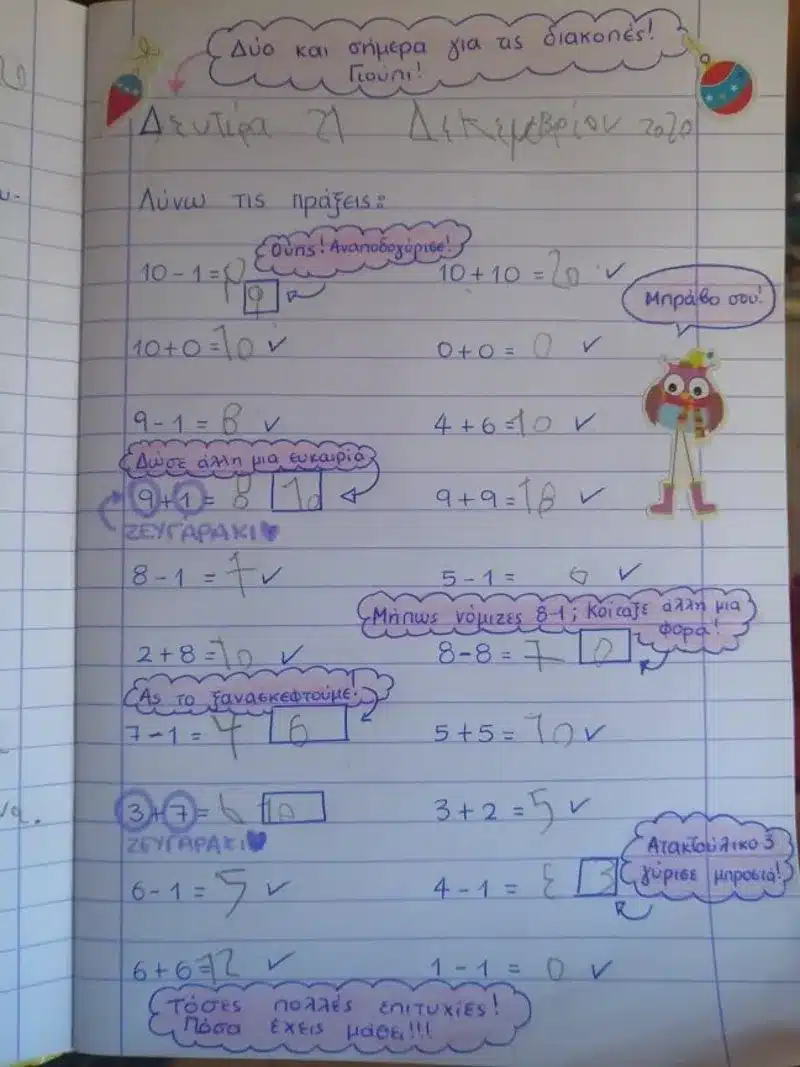 Δύο και σήμερα για τις διακοπές!
Γιούπι!
Δευτέρα 21 Δεκεμβρίου 2020
Λύνω τις πράξεις:
Ούπς! Αναποδογύρισε!
10-1= 9 10+10=20 ✓
9
Μπράβο σου!
10+0=10 ✓ 0+0= 0 ✓
9-1=8 ✓ 4+6=10 ✓
Δώσε άλλη μια ευκαιρία
9+1= 8 10 9+9=18 ✓
ΖΕΥΓΑΡΑΚΙ
8-1 =7 ✓ 5-1= ✓
Μήπως νόμιζες 8-1; Κοίταξε άλλη μια
φορά!
2+8=10 ✓ 8-8= 7 0
Ας το ξανασκεφτούμε.
7-1= 4 6 5+5=10 ✓
3+7= 6 10 3+2=5 ✓
ΖΕΥΓΑΡΑΚΙ
Ατακτούλικο 3
γύρισε μπροστά!
6-1= 5 ✓ 4-1= Ɛ 3
6+6=12 ✓ 1-1= 0 ✓
Τόσες πολλές επιτυχίες!
Πόσα έχεις μάθει!!!